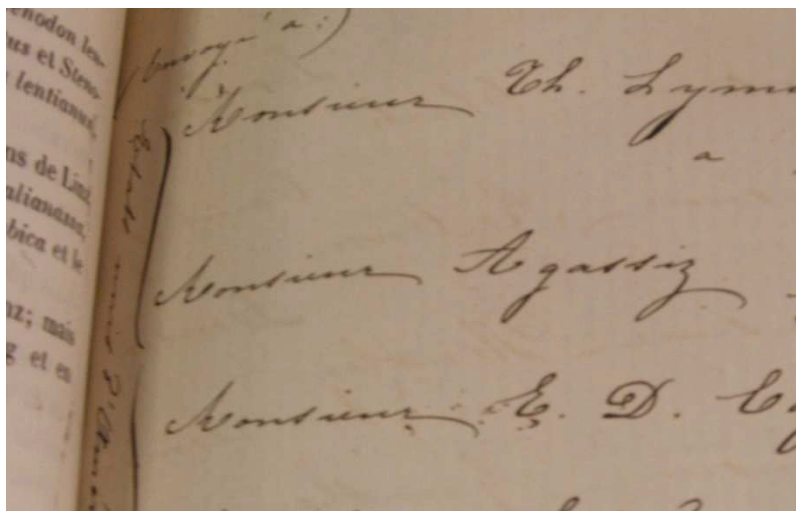 enodon len-
us et Steno-
lentianus,
ns de Linz,
alianassa,
bica et le
nz; mais
g et en
(Envoyé à:)
Monsieur Th. Lym
a
Monsieur Agassiz
Monsieur E. D. Co
Etats unis d'Amé